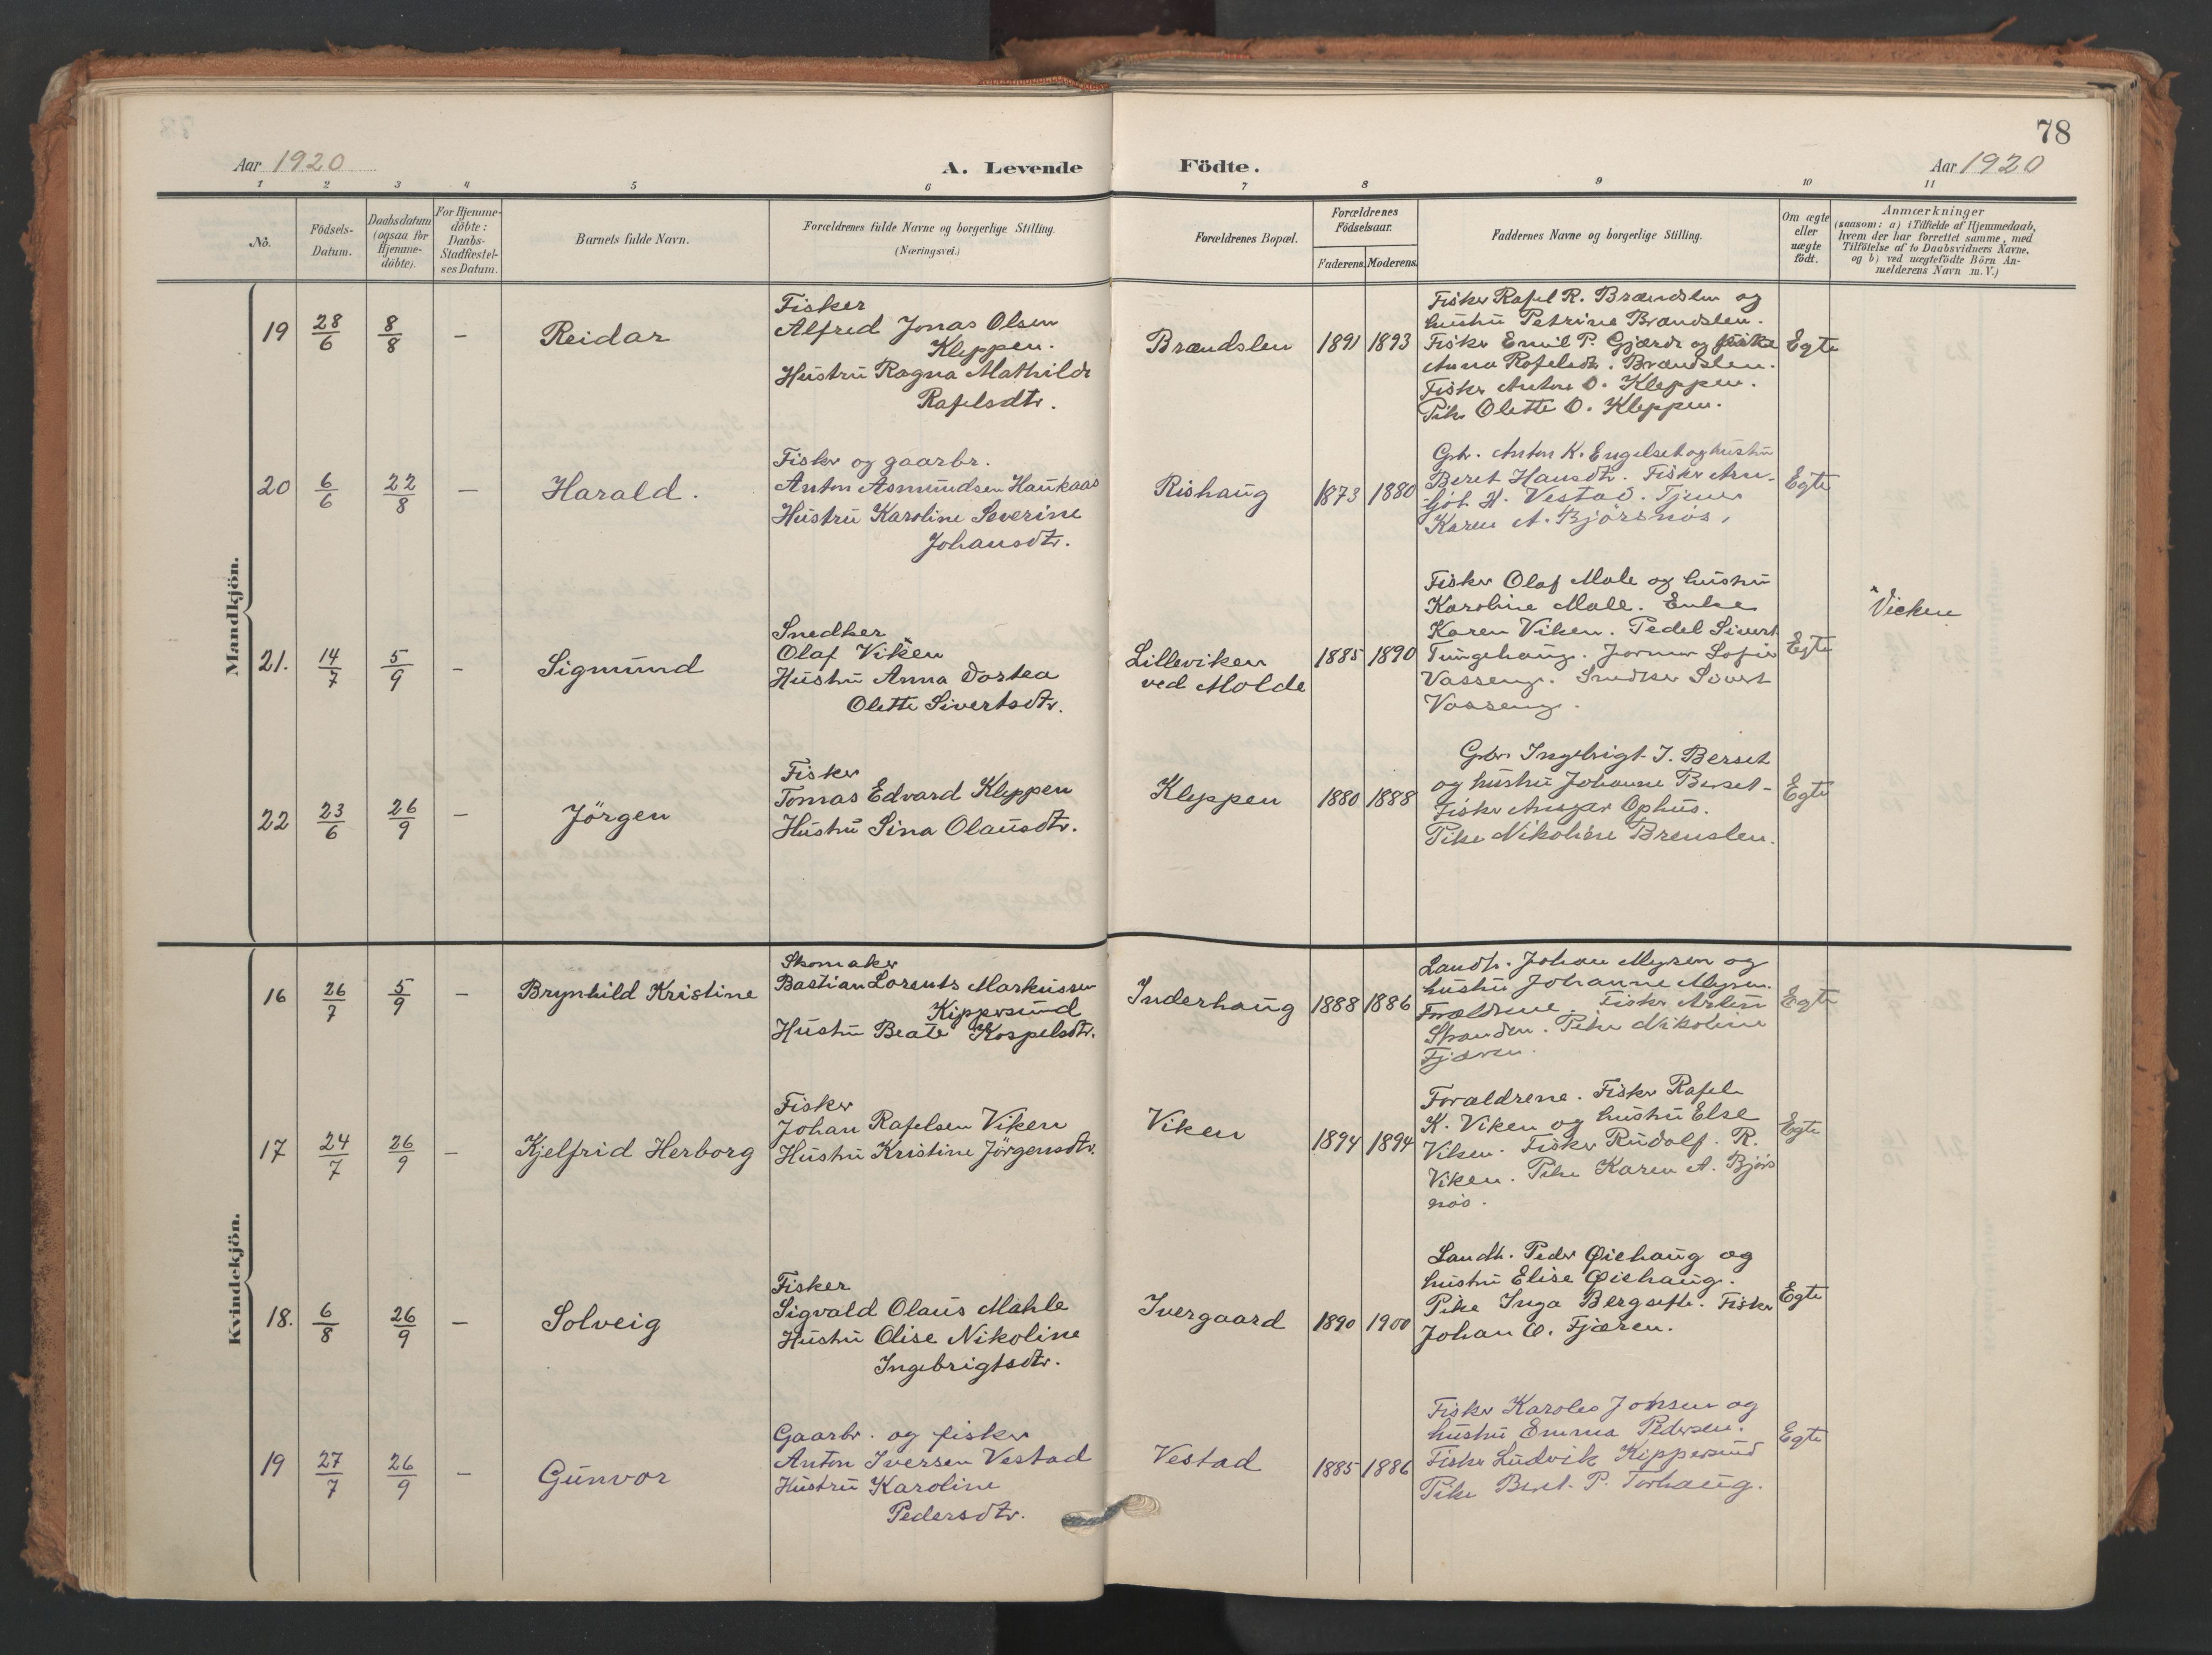 78
Aar 1920
A. Levende Födte.
Aar 1920
1 2 3 4 5 6 7 8 9 10 11
No.
Födsels-
Datum.
Daabsdatum
(ogsaa for
Hjemme-
döbte).
For Hjemme-
döbte:
Daabs-
Stadfæstel-
ses Datum.
Barnets fulde Navn.
Forældrenes fulde Navne og borgerlige Stilling.
(Næringsvei.)
Forældrenes Bopæl.
Forældrenes
Födselsaar.
Faderens. Moderens.
Faddernes Navne og borgerlige Stilling.
Om ægte
eller
uægte
födt.
Anmærkninger
(saasom: a) i Tilfælde af Hjemmedaab,
hvem der har forrettet samme, med
Tilföielse af to Daabsvidners Navne.
og b) ved uægtefödte Börn An-
melderens Navn m. V.)
Mandkjön.
19 28/6 8/8 – Reidar
Fisker
Alfred Jonas Olsen
Kleppen.
Hustru Ragna Mathilde
Rafelsdtr.
Brændslen 1891 1893
Fisker Rafel R. Brændslen og
hustru Petrine Brændslen.
Fisker Emil P. Gjærde og pike
Anna Rafelsdtr. Brændslen.
Fisker Anton O. Kleppen.
Pike Olette O. Kleppen.
Egte
20 6/6 22/8 – Harald.
Fisker og gaarbr.
Anton Asmundsen Haukaas
Hustru Karoline Severine
Johansdtr.
Rishaug 1873 1880
Gbr. Anton K. Engelset og hustru
Beret Hansdtr. Fisker Arn-
ljot H. Vestad. Tjener
Karen A. Bjørsnøs,
Egte
21. 14/7 5/9 – Sigmund
Snedker
Olaf Viken
Hustru Anna Dortea
Olette Sivertsdtr.
Lilleviken
ved Molde
1885 1890
Fisker Olaf Male og hustru
Karoline Male. Enke
Karen Viken. Pedel Sivert
Tungehaug. Jormor Sofie
Vasseng. Snedker Sivert
Vasseng.
Egte
Vicken
22 23/6 26/9 – Jörgen
Fisker
Tomas Edvard Kleppen
Hustru Sina Olausdtr.
Kleppen 1880 1888
Gbr. Ingebrigt I. Berset
og hustru Johanne Berset –
Fisker Ansgar Ophus.
Pike Nikoline Brenslen.
Egte
Kvindekjön.
16 26/7 5/9 – Brynhild Kristine
Skomaker
Bastian Lorents Markussen
Kippersund
Hustru Beate Kospelsdtr.
Inderhaug 1888 1886
Landh. Johan Myren og
hustru Johanne Myren.
Forældrene. Fisker
Stranden. Pike Nikoline
Fjæren.
Egte
17 24/7 26/9 – Kjelfrid Herborg
Fisker
Johan Rafelsen Viken
Hustru Kristine Jörgensdtr.
Viken 1894 1894
Forældrene. Fisker Rafel
K. Viken og hustru Else
Viken. Fisker Rudolf. R.
Viken. Pike Karen A. Bjørs
nøs.
Egte
18. 6/8 26/9 – Solveig
Fisker
Sigvald Olaus Mahle
Hustru Olise Nikoline
Ingebrigtsdtr.
Ivergaard 1890 1900
Landh. Peder Øiehaug og
hustru Elise Øiehaug.
Pike Inga Bergsette. Fisker
Johan O. Fjæren.
Egte
19 27/7 26/9 – Gunvor
Gaarbr. og fisker
Anton Iversen Vestad
Hustru Karoline
Pedersdtr.
Vestad 1885 1886
Fisker Karoles Johsen og
hustru Emma Pedersen.
Fisker Ludvik Kippersund
Pike Beret. P. Torhaug.
Egte